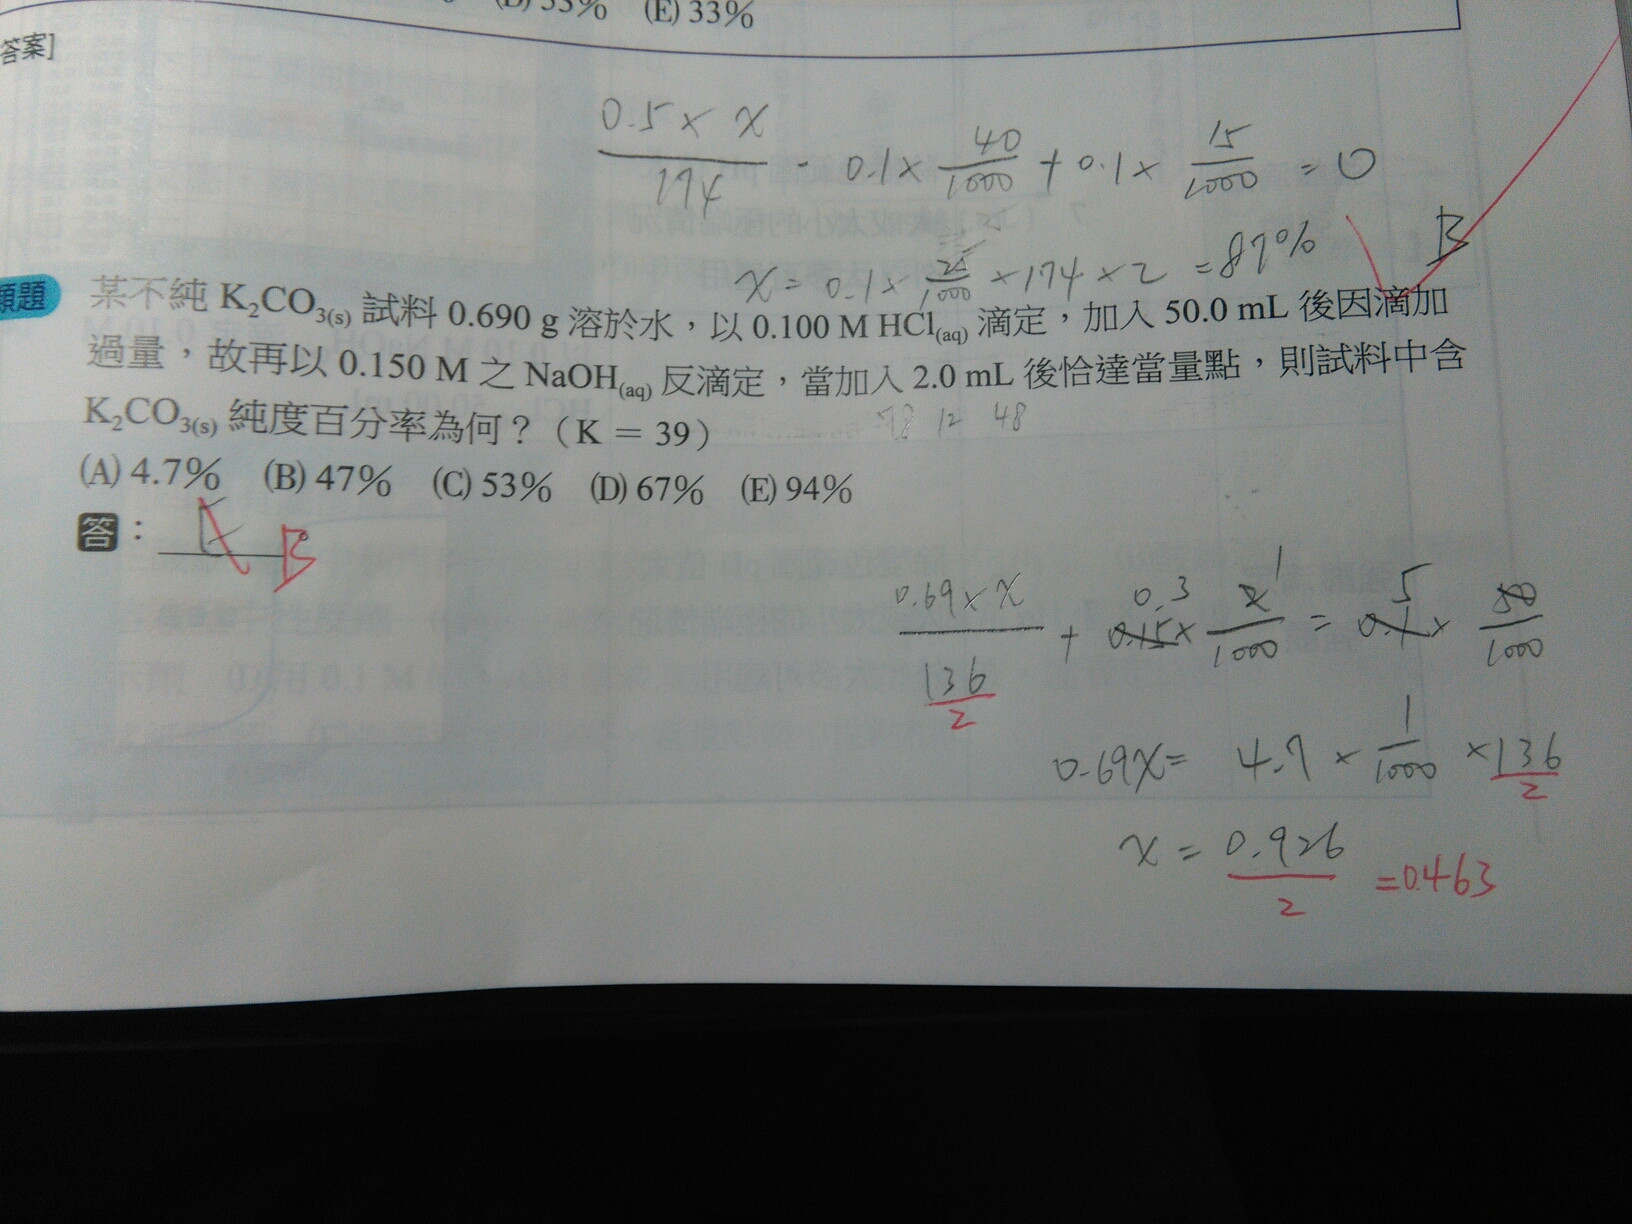 (D) 53% (E) 33%
答案]
0.5 × x / 174 - 0.1 × 40/1000 + 0.1 × 15/1000 = 0
x = 0.1 × 25/1000 × 174 × 2 = 87% B
類題 某不純 K₂CO₃(s) 試料 0.690 g 溶於水，以 0.100 M HCl(aq) 滴定，加入 50.0 mL 後因滴加
過量，故再以 0.150 M 之 NaOH(aq) 反滴定，當加入 2.0 mL 後恰達當量點，則試料中含
K₂CO₃(s) 純度百分率為何？（K = 39）
78 12 48
(A) 4.7% (B) 47% (C) 53% (D) 67% (E) 94%
答： E B
0.69 × x / (136/2) + 0.15 × 2/1000 = 0.1 × 50/1000
0.3 1 5
0.69x = 4.7 × 1/1000 × 136/2
x = 0.926/2 = 0.463